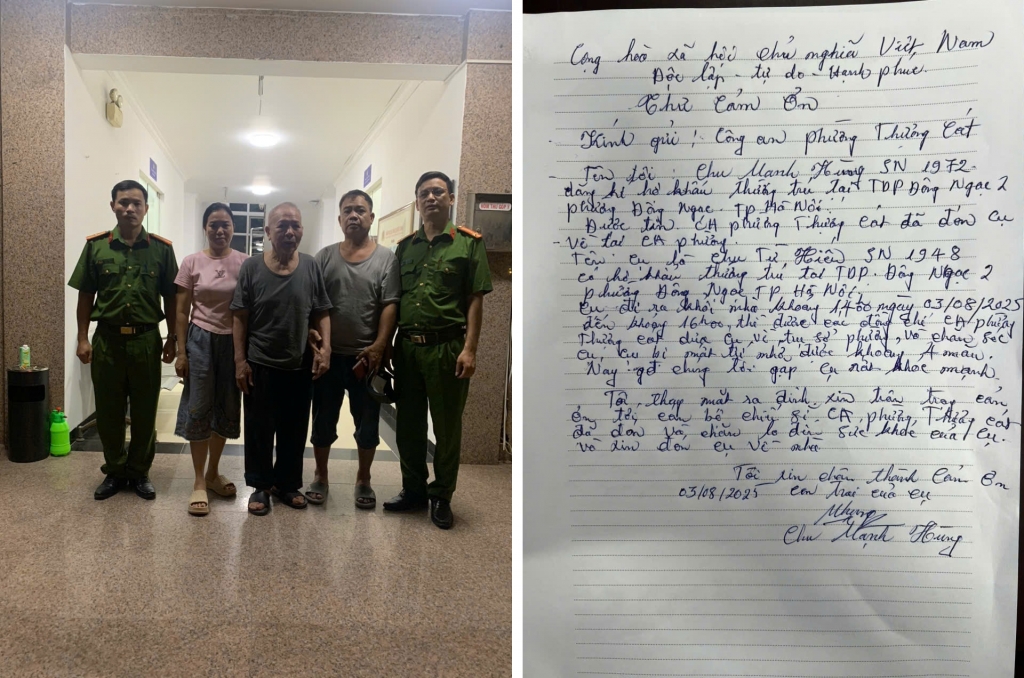 Cộng hoà xã hội chủ nghĩa Việt Nam
Độc lập - tự do - Hạnh phúc.
Thư Cảm Ơn
Kính gửi! Công an phường Thượng Cát
Tên tôi: Chu Mạnh Hùng SN 1972
đăng kí hộ khẩu thường trú tại TDP Đông Ngạc 2
phường Đông Ngạc. TP Hà Nội.
Được tin CA phường Thượng Cát đã đón cụ
về tại CA phường.
Tên cụ là Chu Tử Hiến SN 1948
có hộ khẩu thường trú tại TDP. Đông Ngạc 2
phường Đông Ngạc TP. Hà Nội.
cụ đi ra khỏi nhà khoảng ngày 03/08/2025
đến khoảng 16h00, thì được các đồng chí CA phường
Thượng Cát đưa cụ về trụ sở phường, và chăm sóc
cụ, cụ bị mất trí nhớ được khoảng 4 năm.
Nay gđ chúng tôi gặp cụ rất khoẻ mạnh.
Tôi, thay mặt ra đình xin trân trọng cảm
ơn tới cán bộ chiến sĩ CA phường Thượng Cát
đã đón và chăm lo đến sức khoẻ của cụ.
và xin đón cụ về nhà
Tôi xin chân thành cảm ơn
03/08/2025 con trai của cụ
Chu Mạnh Hùng